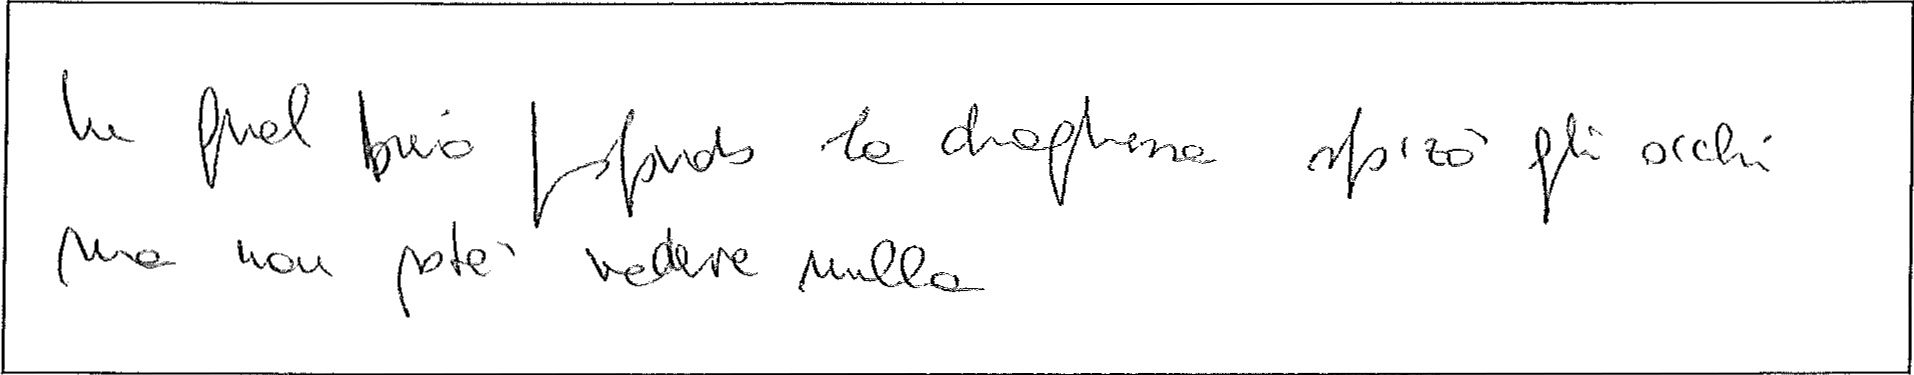 In quel buio profondo la draghessa spizò gli occhi
ma non poté vedere nulla